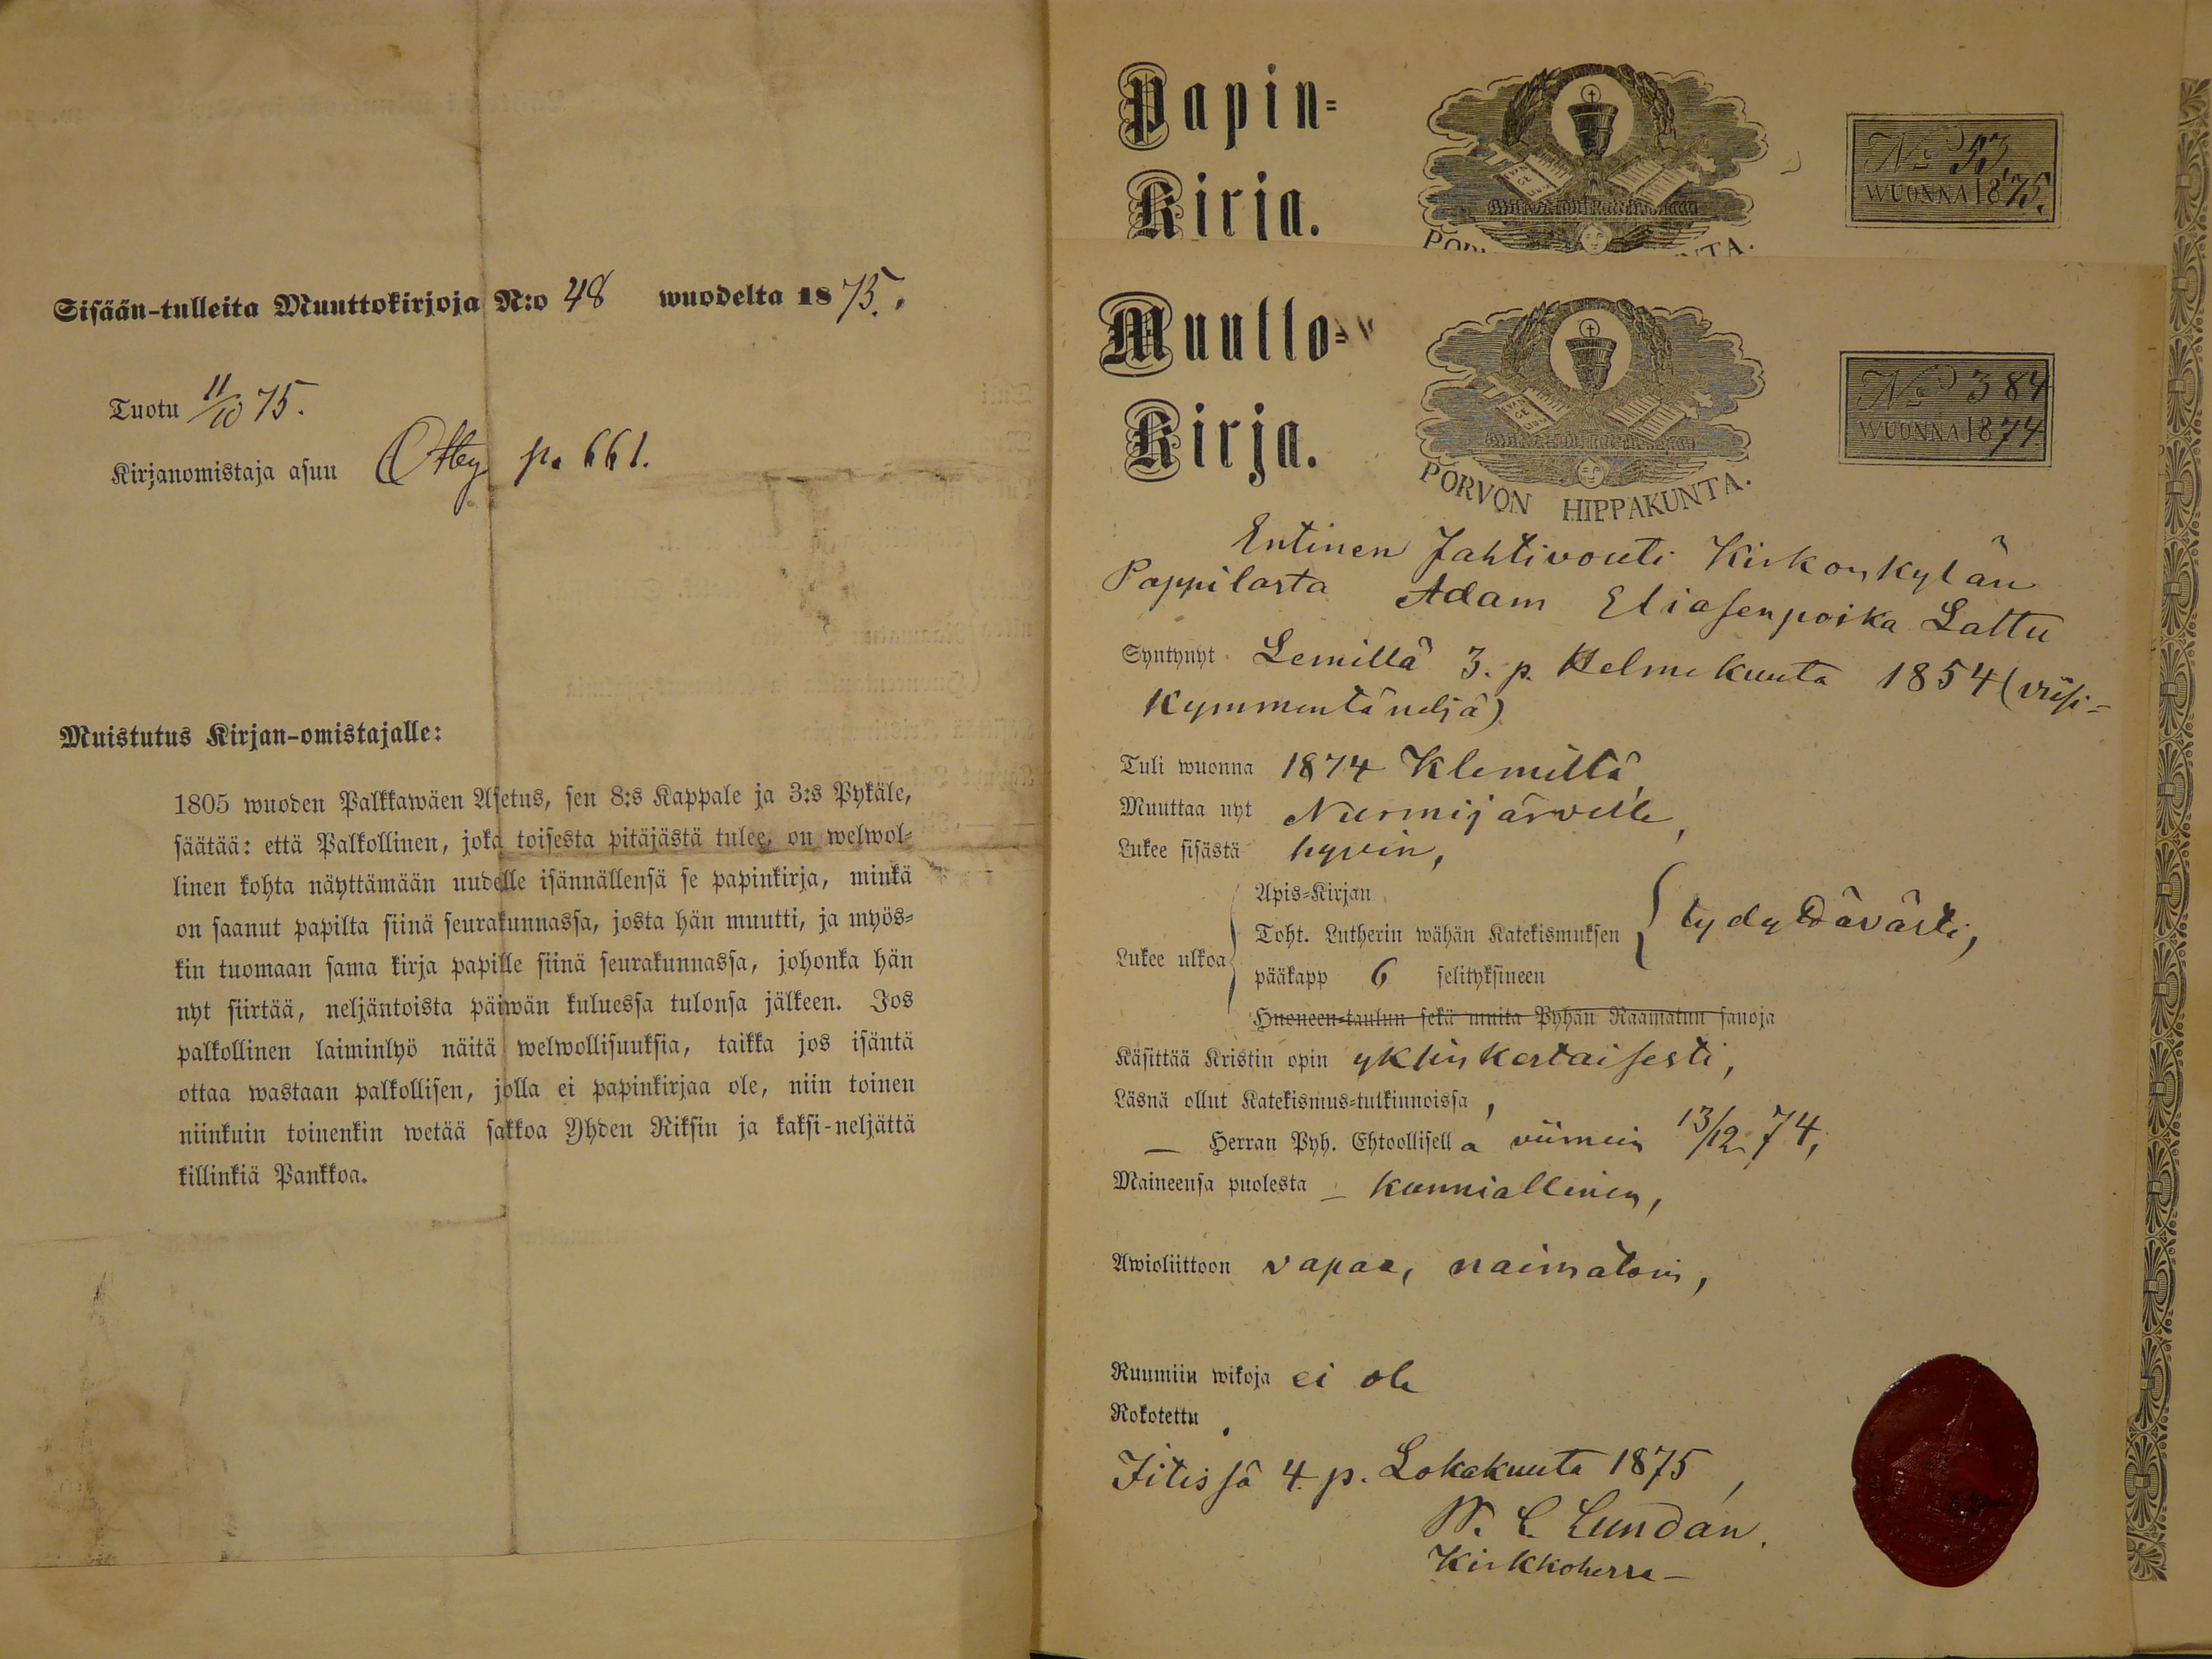 Sisään-tulleita Muuttokirjoja N:o 48 wuodelta 1875.
Tuotu 11/10 75.
Kirjanomistaja asuu p. 661.
Muistutus Kirjan-omistajalle:
1805 wuoden Palkkawäen Asetus, sen 8:s Kappale ja 3:s Pykäle,
säätää: että Palkollinen, joka toisesta pitäjästä tulee, on welwol-
linen kohta näyttämään uudelle isännällensä se papinkirja, minkä
on saanut papilta siinä seurakunnassa, josta hän muutti, ja myös-
kin tuomaan sama kirja papille siinä seurakunnassa, johonka hän
nyt siirtää, neljäntoista päiwän kuluessa tulonsa jälkeen. Jos
palkollinen laiminlyö näitä welwollisuuksia, taikka jos isäntä
ottaa wastaan palkollisen, jolla ei papinkirjaa ole, niin toinen
niinkuin toinenkin wetää sakkoa Yhden Riksin ja kaksi-neljättä
killinkiä Pankkoa.
Papin-
Kirja.
EVAN
GE
LIUM
No 53
WUONNA 1875.
Muutto-
Kirja.
EVAN
GE
LIUM
PORVON HIPPAKUNTA.
No 384
WUONNA 1874
Entinen Jahtivouti Kirkonkylän
Pappilasta Adam Eliasenpoika Lattu
Syntynyt Lemillä 3. p. Helmekuuta 1854 (viisi-
kymmentäneljä)
Tuli wuonna 1874 Klemiltä,
Muuttaa nyt Nurmijärvelle,
Lukee sisästä hyvin,
Lukee ulkoa
Apis-Kirjan
Toht. Lutherin wähän Katekismuksen
pääkapp 6 selityksineen
tydyttävästi,
Huoneen-taulun sekä muita Pyhän Raamatun sanoja
Käsittää Kristin opin yksinkertaisesti,
Läsnä ollut Katekismus-tulkinnoissa,
— Herran Pyh. Ehtoollisella viimein 13/12 74,
Maineensa puolesta – kunniallinen,
Awioliittoon vapaa, naimatoin,
Ruumiin wikoja ei ole
Rokotettu.
Iitissä 4 p. Lokakuuta 1875,
Lundán.
Kirkkoherra –